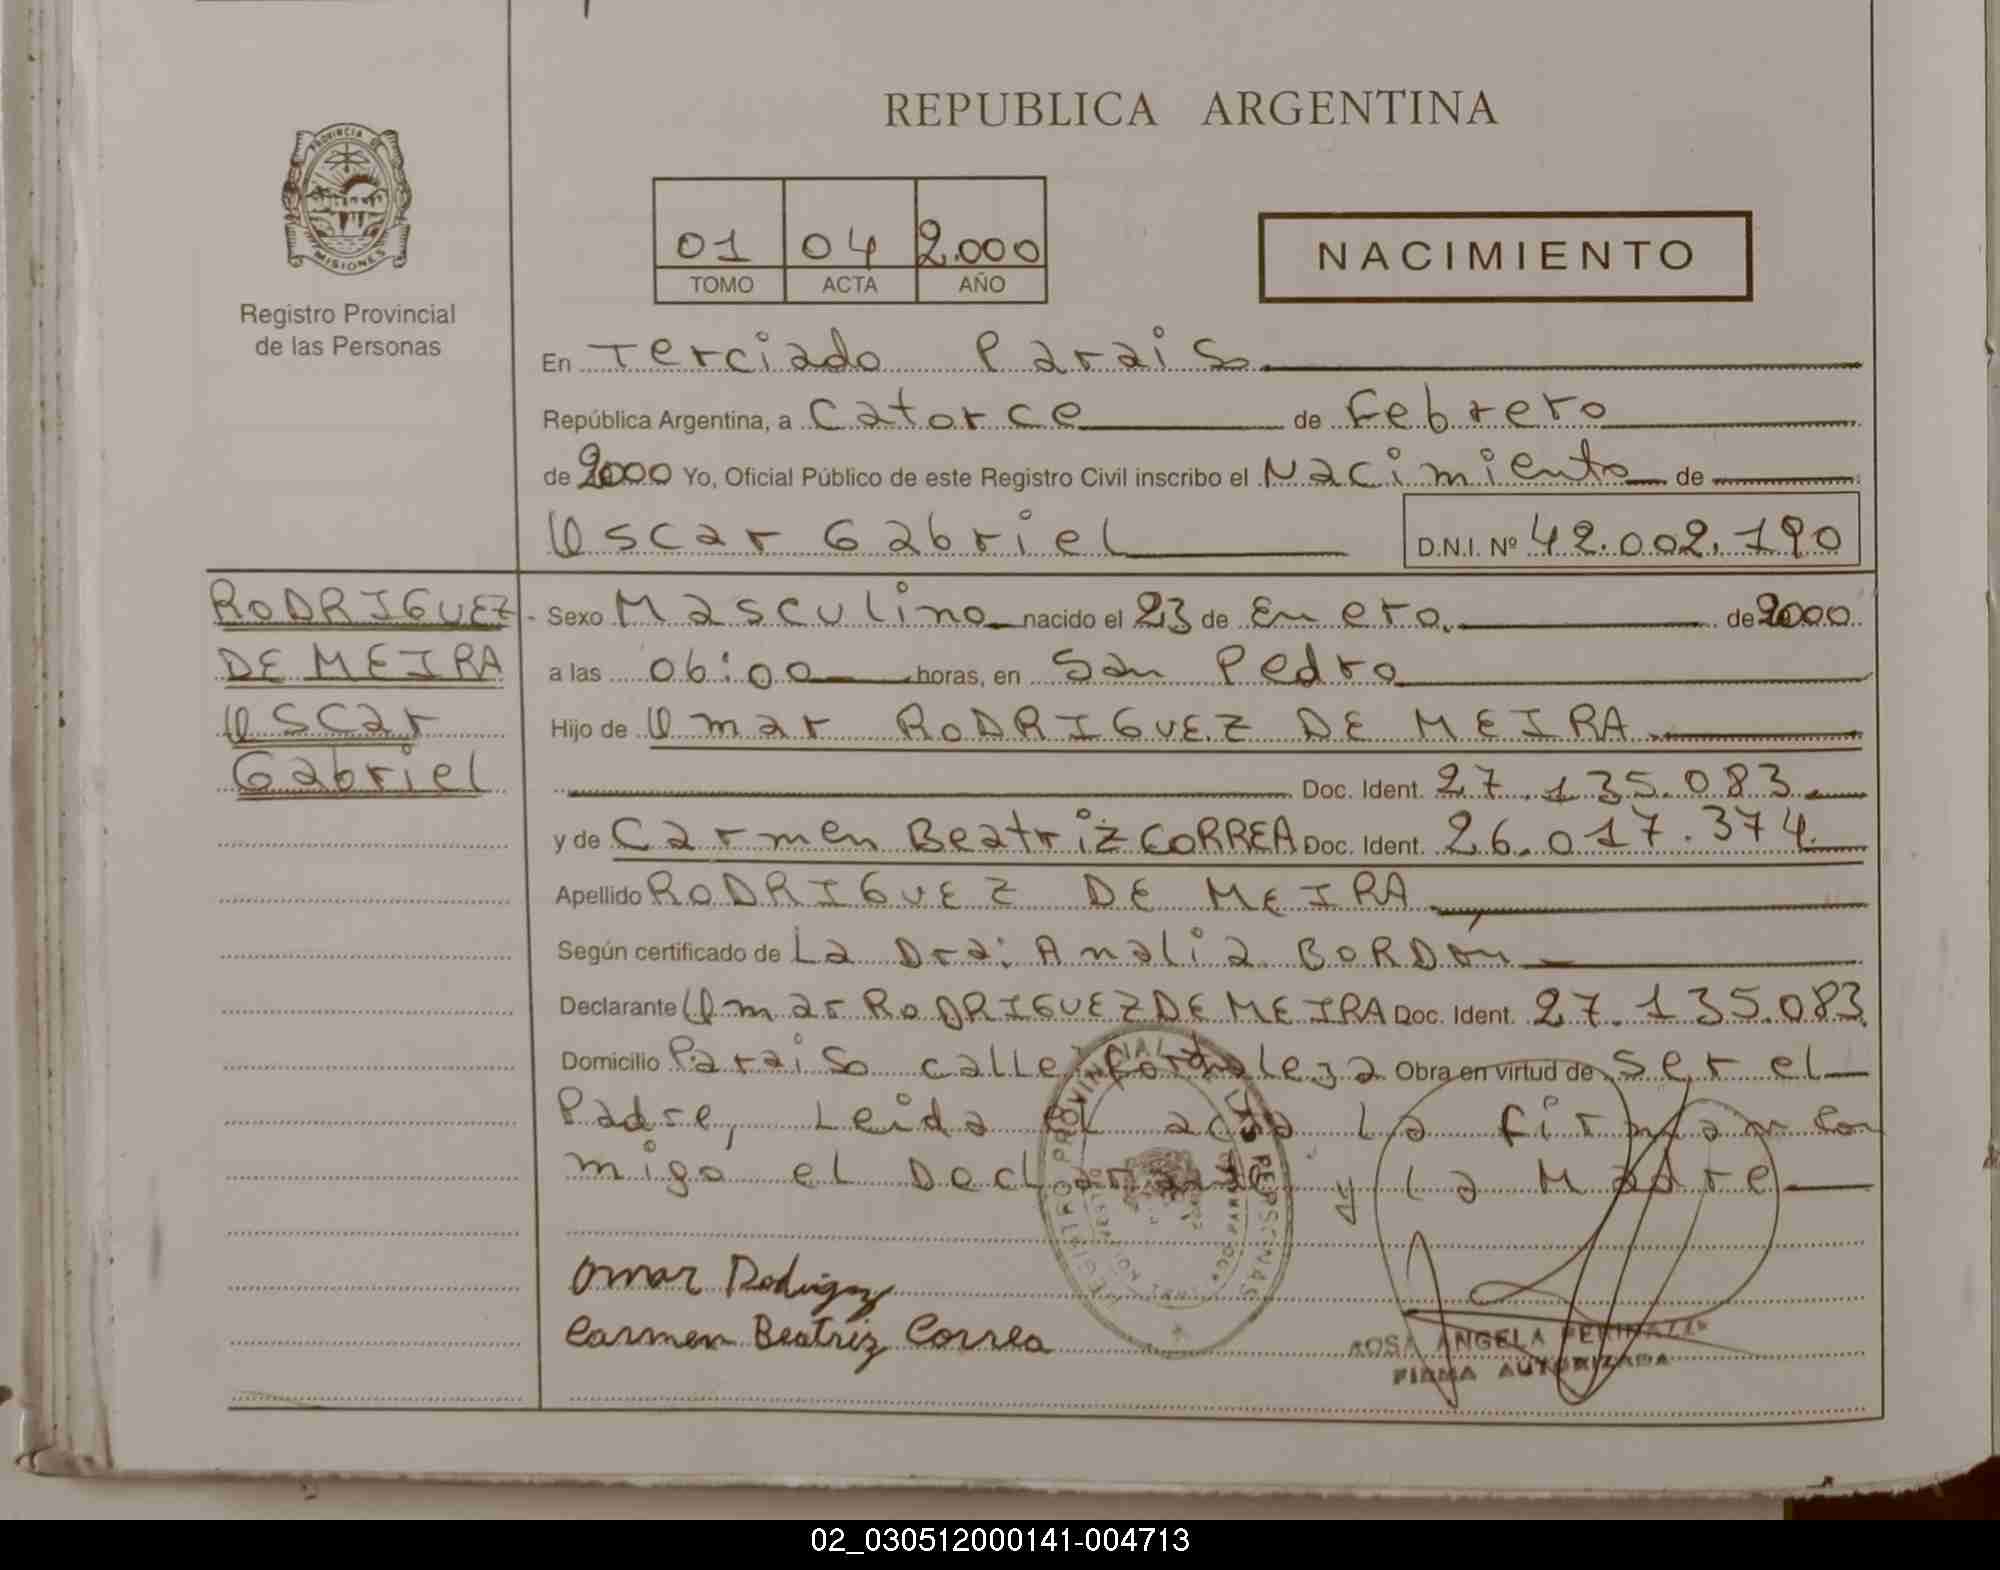 REPUBLICA ARGENTINA
PROVINCIA DE MISIONES
Registro Provincial
de las Personas
01 04 2.000
TOMO ACTA AÑO
NACIMIENTO
En Terciado Paraiso
República Argentina, a Catorce de Febrero
de 2000 Yo, Oficial Público de este Registro Civil inscribo el Nacimiento de
Oscar Gabriel D.N.I. Nº 42.002.190
RODRIGUEZ
DE MEIRA
Oscar
Gabriel
- Sexo Masculino nacido el 23 de Enero. de 2000
a las 06:00 horas, en San Pedro
Hijo de Omar RODRIGUEZ DE MEIRA
Doc. Ident. 27.135.083
y de Carmen Beatriz CORREA Doc. Ident. 26.017.374
Apellido RODRIGUEZ DE MEIRA
Según certificado de La Dra: Analia BORDÓN
Declarante Omar RODRIGUEZ DE MEIRA Doc. Ident. 27.135.083
Domicilio Paraiso calle fortaleza Obra en virtud de ser el
Padre, Leida el acta La firman con
migo el Declarante y La Madre
Omar Rodriguez
Carmen Beatriz Correa
REGISTRO PROVINCIAL DE LAS PERSONAS
ROSA ANGELA
FIRMA AUTORIZADA
02_030512000141-004713